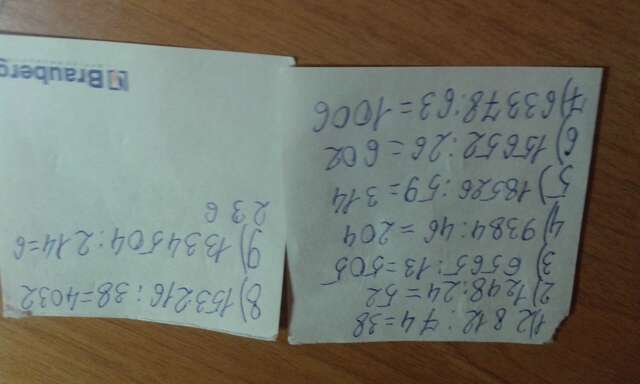 1)2812:74=38
2)1248:24=52
3) 6565:13=505
4) 9384:46=204
5) 18526:59=314
6) 15652:26=602
7) 63378:63=1006
8) 153216:38=4032
9) 1334504:214=6
236
Brauberg